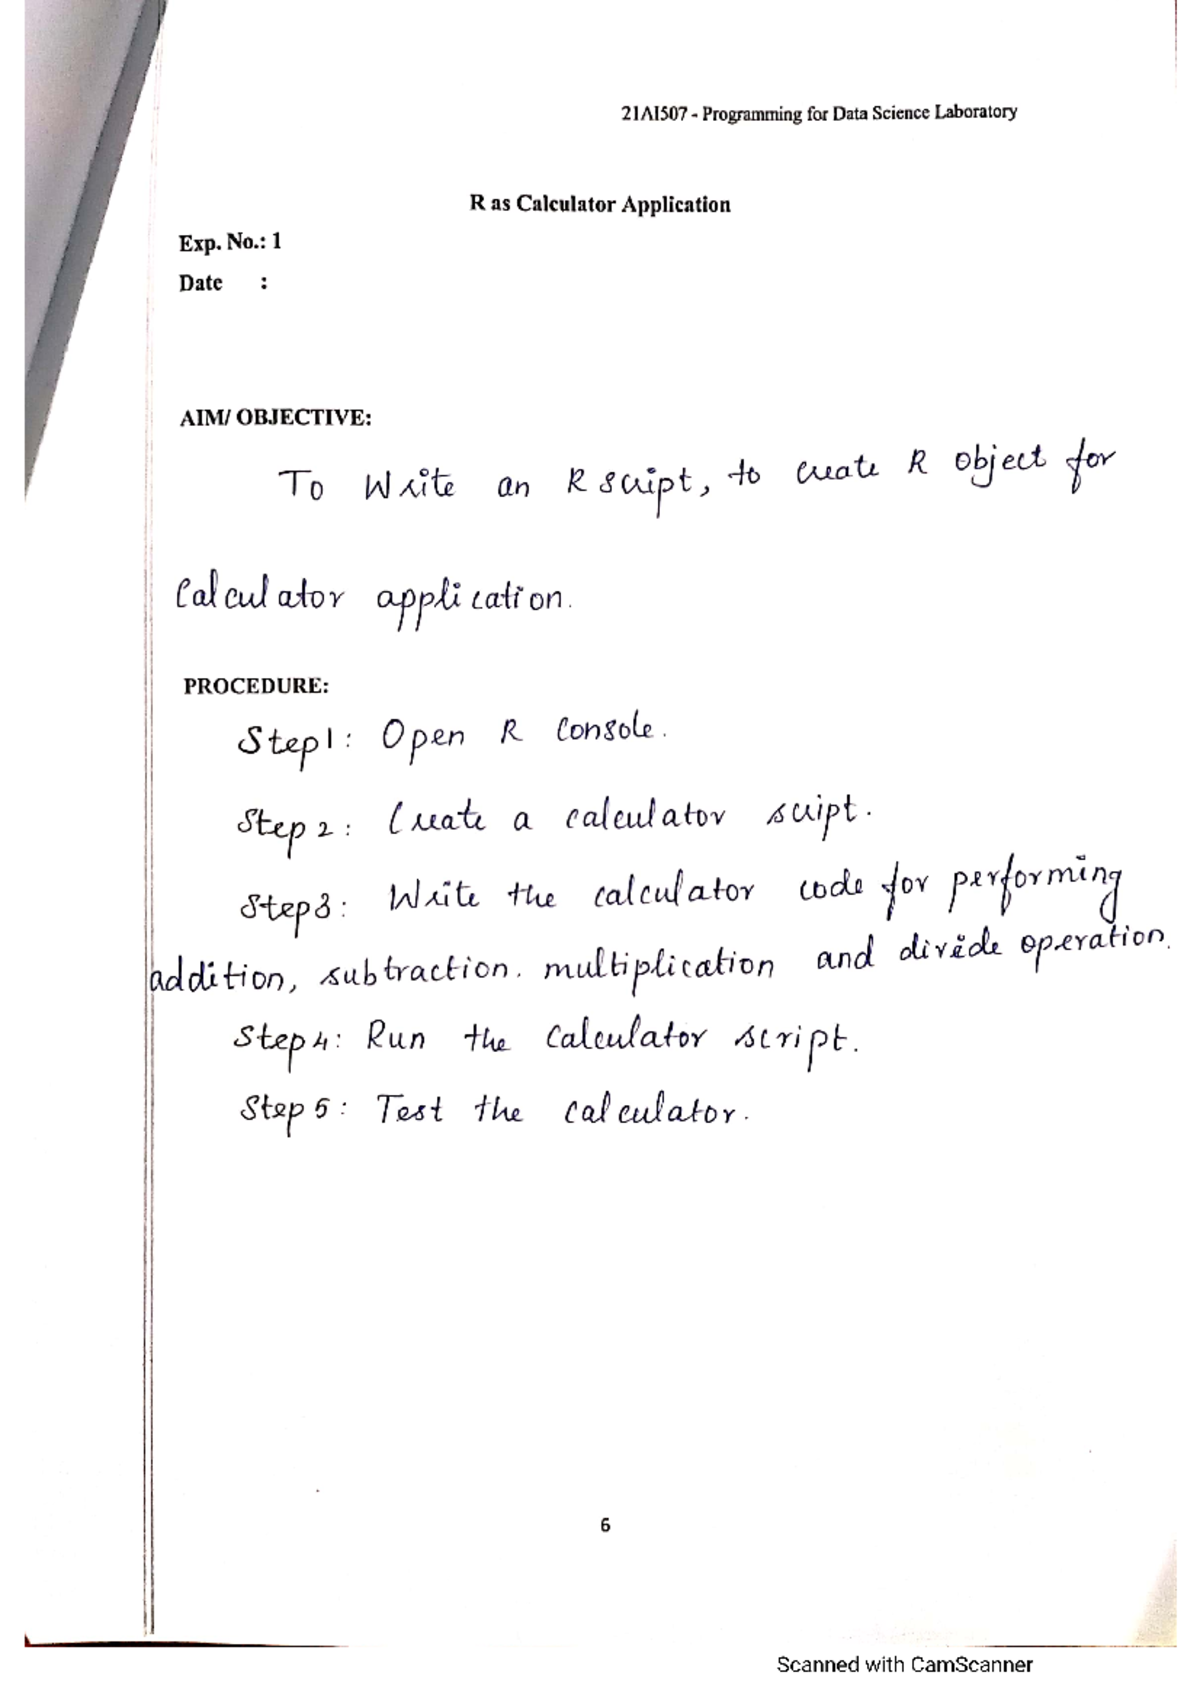 21AI507 - Programming for Data Science Laboratory
R as Calculator Application
Exp. No.: 1
Date :
AIM/ OBJECTIVE:
To Write an R script, to create R object for
Calculator application.
PROCEDURE:
Step1: Open R Console.
Step 2: Create a calculator script.
Step3: Write the calculator code for performing
addition, subtraction. multiplication and divide operation.
Step 4: Run the Calculator script.
Step 5: Test the calculator.
6
Scanned with CamScanner